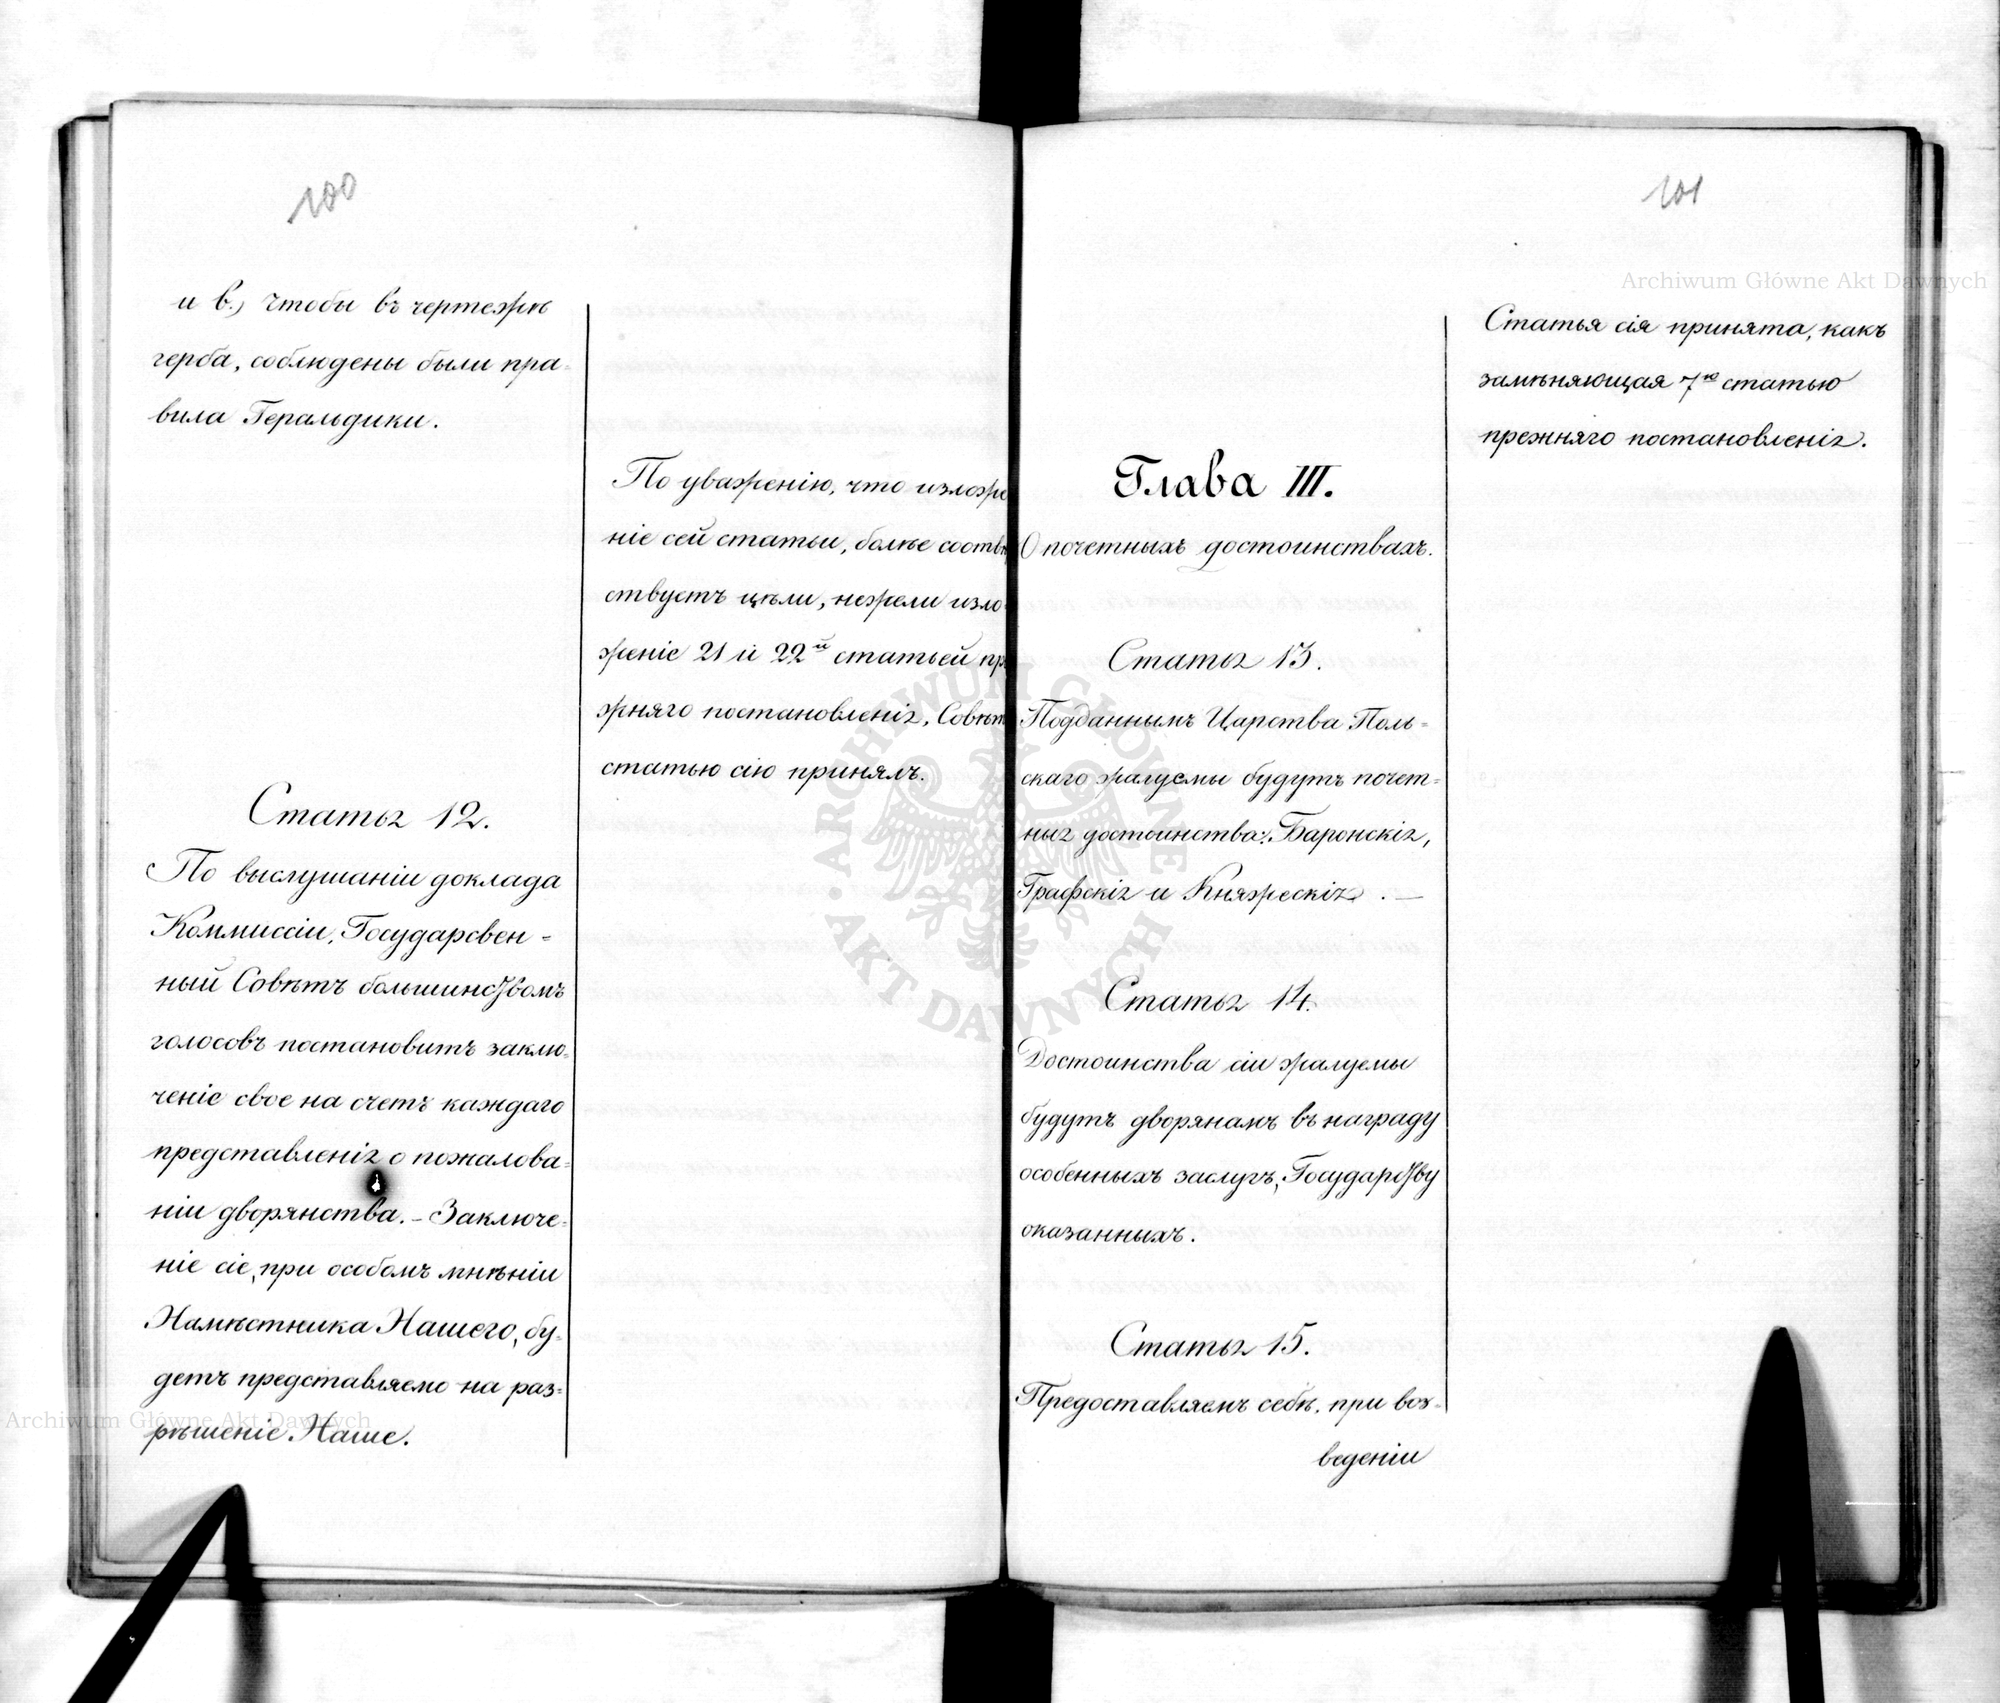 100
и в.) чтобы въ чертежѣ
герба, соблюдены были пра-
вила Геральдики.
Статья 12.
По выслушаніи доклада
Коммиссіи, Государсвен-
ный Совѣтъ большинствомъ
голосовъ постановитъ заклю-
ченіе свое на счетъ каждаго
представленія о пожалова-
ніи дворянства. – Заключе-
ніе сіе, при особомъ мнѣніи
Намѣстника Нашего, бу-
детъ представляемо на раз-
рѣшеніе Наше.
По уваженію, что изложе
ніе сей статьи, болѣе соотвѣ
ствуетъ цѣли, нежели изло
женіе 21 и 22й статьей пр
жняго постановленія, Совѣт
статью сію принялъ.
101
Глава III.
О почетныхъ достоинствахъ.
Статья 13.
Подданнымъ Царства Поль-
скаго жалуемы будутъ почет-
ныя достоинства: Баронскія,
Графскія и Княжескія. —
Статья 14.
Достоинства сіи жалуемы
будутъ дворянамъ въ награду
особенныхъ заслугъ, Государству
оказанныхъ.
Статья 15.
Предоставляемъ себѣ, при воз-
веденіи
Статья сія принята, какъ
замѣняющая 7ю статью
прежняго постановленія.
Archiwum Główne Akt Dawnych
ARCHIWUM GŁÓWNE AKT DAWNYCH
Archiwum Główne Akt Dawnych